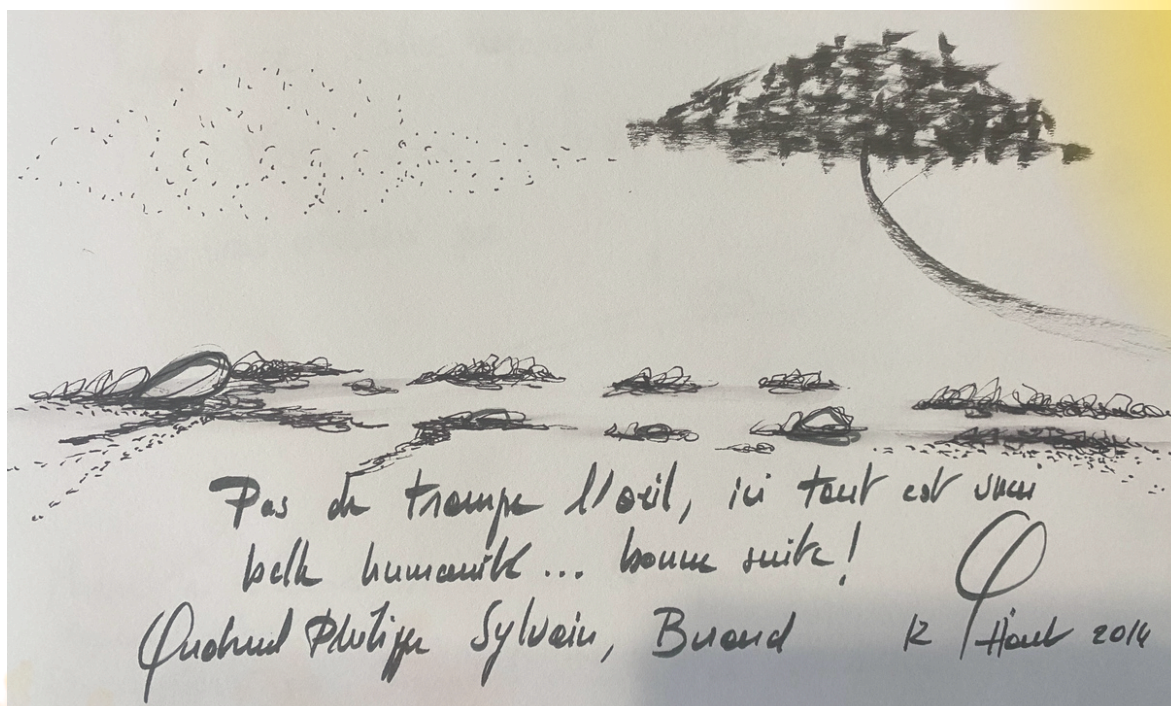 Pas de trompe l'oeil, ici tout est
belle humanité... bonne suite!
Philippe Sylvain,
12 Août 2014